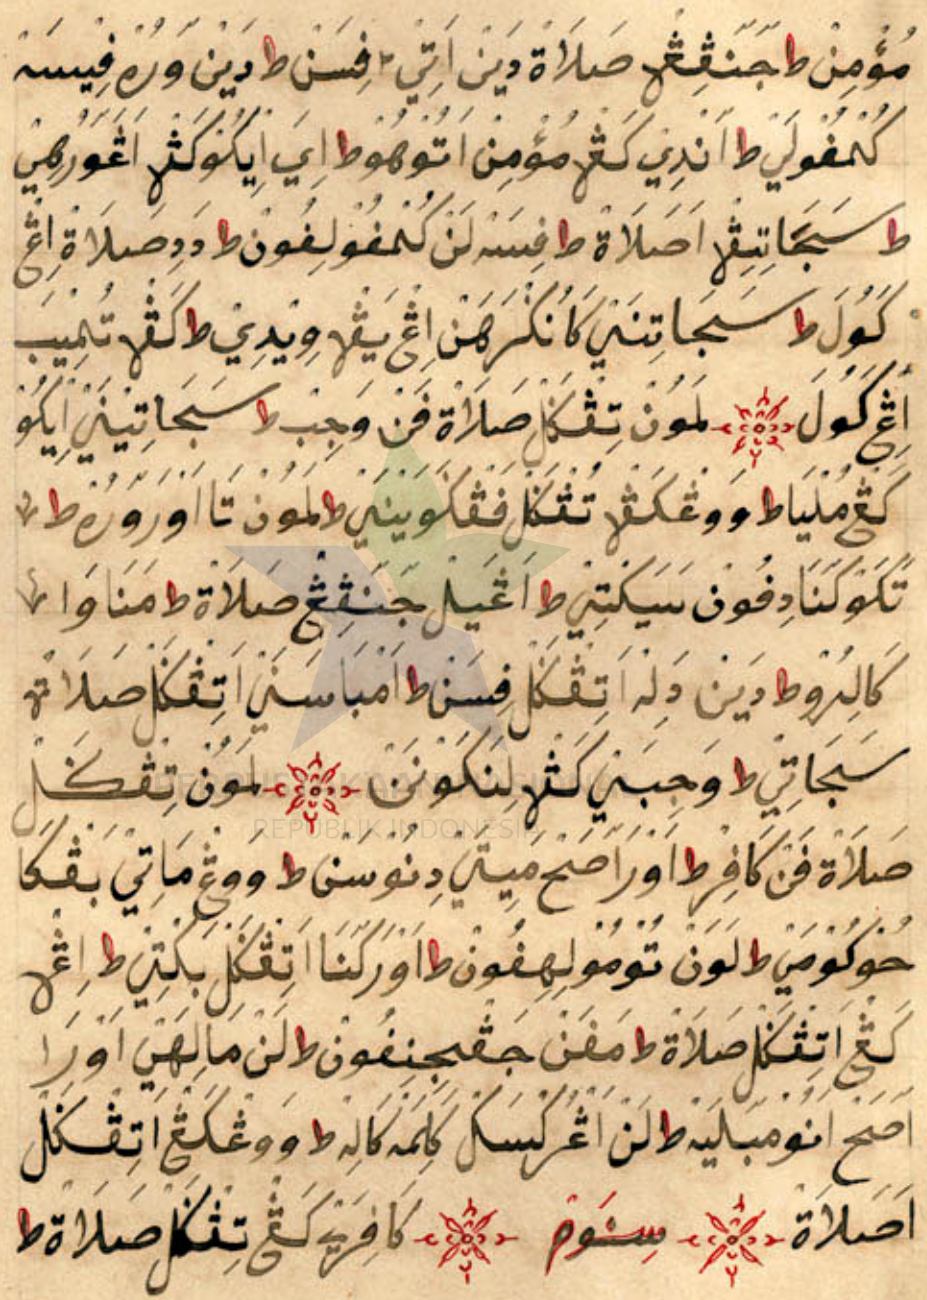 مُؤْمِنْ ط جَنَڠِڠْ صَلَاةْ دَيَنْ اَتِيْ٢ فِسَنْ ط دَيَنْ وَرُهْ فِيسَه
كُمْفُولَيْ ط اَنْدِيْ كَڠْ مُؤْمِنْ اَتُوهُو ط اِيَ اِيْكُوكَڠْ اَڠَوْرُهِيْ
ط سَجَاتِيڠْ اَصَلَاةْ ط فِيسَه لَنْ كُمْفُولِفُونْ ط دَدِ صَلَاةْ اِڠْ
كَوُلَ ط سَجَاتِنَيْ كَانُكْرَهَنْ اِڠْ يَڠْ وِيْدِيْ ط كَڠْ تُمِيْبَ
اِڠْ كَوُلَ لَمَوُنْ تِڠْكَلْ صَلَاةْ فَنْ وَجِبْ ط سَجَاتِيْنَيْ اِيْكُوْ
كَڠْ مُلْيَا ط وَوْڠْكَڠْ تِڠْكَلْ فَڠْكَوْيَنَيْ ط لَمَوُنْ تَا اَوْرَ وَرُهْ ط
تَكَوْكَنَا دِفُونْ سَيَكْتِيْ ط اَڠَيَلْ جَنَڠِڠْ صَلَاةْ ط مَنَاوَا
كَالِيْرُو ط دَيَنْ دَلِهْ اَتِڠْكَلْ فِسَنْ ط اَمْبَاسَنَيْ اَتِڠْكَلْ صَلَاةْ
سَجَاتِيْ ط وَجِبَيْ كَڠْ لِنَكَوْنَنْ لَمَوُنْ تِڠْكَلْ
صَلَاةْ فَنْ كَافِرْ ط اَوْرَ اَصَحْ مِيَتَيْ دِنُوسَنْ ط وَوْڠْ مَاتِيْ بَڠْكَا
حُوْكُوْمَيْ ط لَوَنْ تُوْمُوْلِهِفُونْ ط اَوْرَكَنَا اَتِڠْكَلْ بَكْتِيْ ط اِڠْ
كَڠْ اَتِڠْكَلْ صَلَاةْ ط مَفَنْ جَڠْجِنِفُونْ ط لَنْ مَالِهَيْ اَوْرَا
اَصَحْ اَنُوْمْبَلَيْه ط لَنْ اَڠْرْكَسَكْ كَلِمَه كَالِه ط وَوْڠْكَڠْ اَتِڠْكَلْ
اَصَلَاةْ سِنَوم كَافِرَيْ كَڠْ تِڠْكَلْ صَلَاةْ ط